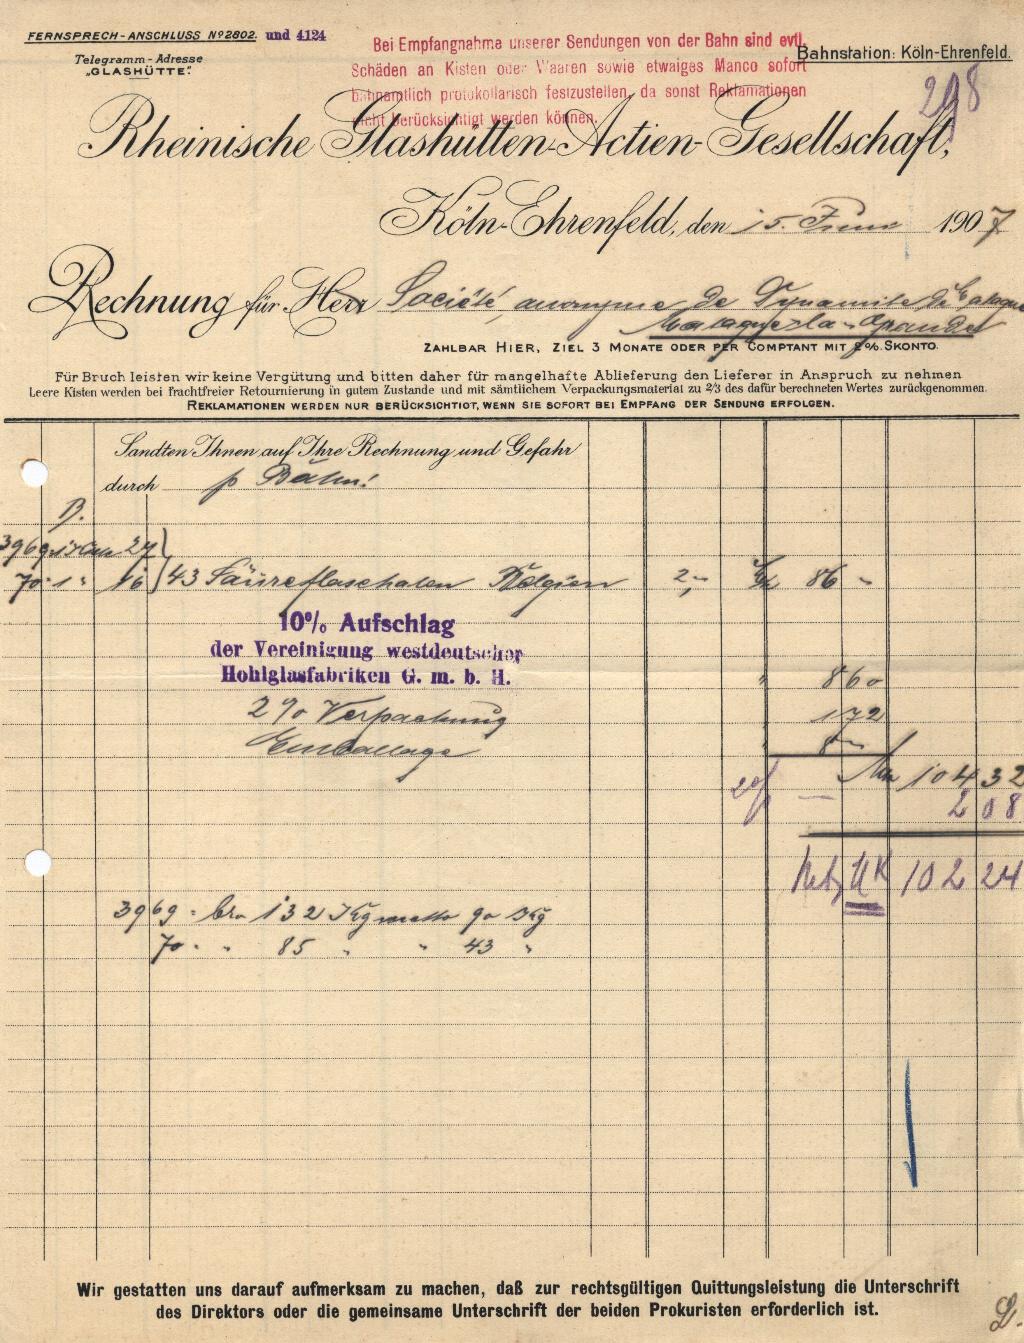 FERNSPRECH-ANSCHLUSS No 2802. und 4124
Telegramm-Adresse
„GLASHÜTTE".
Bei Empfangnahme unserer Sendungen von der Bahn sind evtl.
Schäden an Kisten oder Waaren sowie etwaiges Manco sofort
bahnamtlich protokollarisch festzustellen, da sonst Reklamationen
nicht berücksichtigt werden können.
Bahnstation: Köln-Ehrenfeld.
298
Rheinische Glashütten-Actien-Gesellschaft,
Köln-Ehrenfeld, den 15. Juni 1907
Rechnung für Herr Société anonyme de Dynamite de
ZAHLBAR HIER, ZIEL 3 MONATE ODER PER COMPTANT MIT 2%. SKONTO.
Für Bruch leisten wir keine Vergütung und bitten daher für mangelhafte Ablieferung den Lieferer in Anspruch zu nehmen
Leere Kisten werden bei frachtfreier Retournierung in gutem Zustande und mit sämtlichem Verpackungsmaterial zu 2/3 des dafür berechneten Wertes zurückgenommen.
REKLAMATIONEN WERDEN NUR BERÜCKSICHTIGT, WENN SIE SOFORT BEI EMPFANG DER SENDUNG ERFOLGEN.
Sandten Ihnen auf Ihre Rechnung und Gefahr
durch p Bahn!
B.
3969 27
70 1 " 16 43 Säureflaschalen Belgien 2,- 86 -
10% Aufschlag
der Vereinigung westdeutscher
Hohlglasfabriken G. m. b. H. " 8 60
2% Verpackung 1 72
Emballage " 8 -
Mk 104 32
2% — 2 08
Netto MK 102 24
3969 = bro 132 Kg netto 90 Kg
70 " " 85 " " 43 "
Wir gestatten uns darauf aufmerksam zu machen, daß zur rechtsgültigen Quittungsleistung die Unterschrift
des Direktors oder die gemeinsame Unterschrift der beiden Prokuristen erforderlich ist.